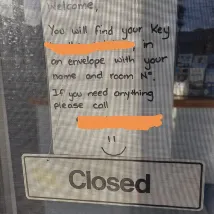 welcome,
You will find your key
in
an envelope with your
name and room N°
If you need anything
please call
Closed